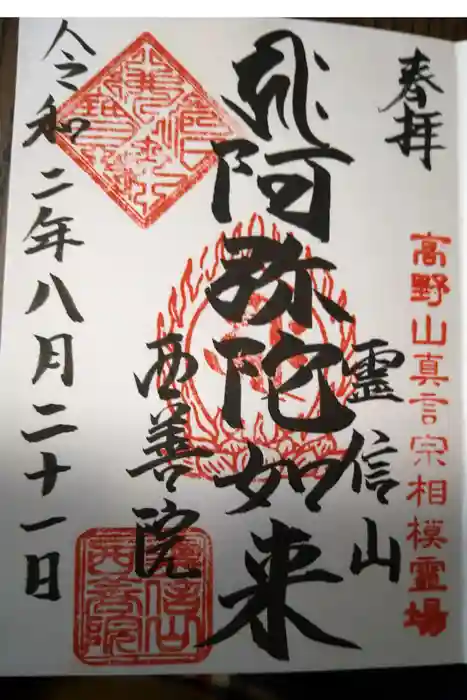 奉拝
高野山真言宗相模霊場
霊信山
阿弥陀如来
西善院
令和二年八月二十一日
霊信山
西善院